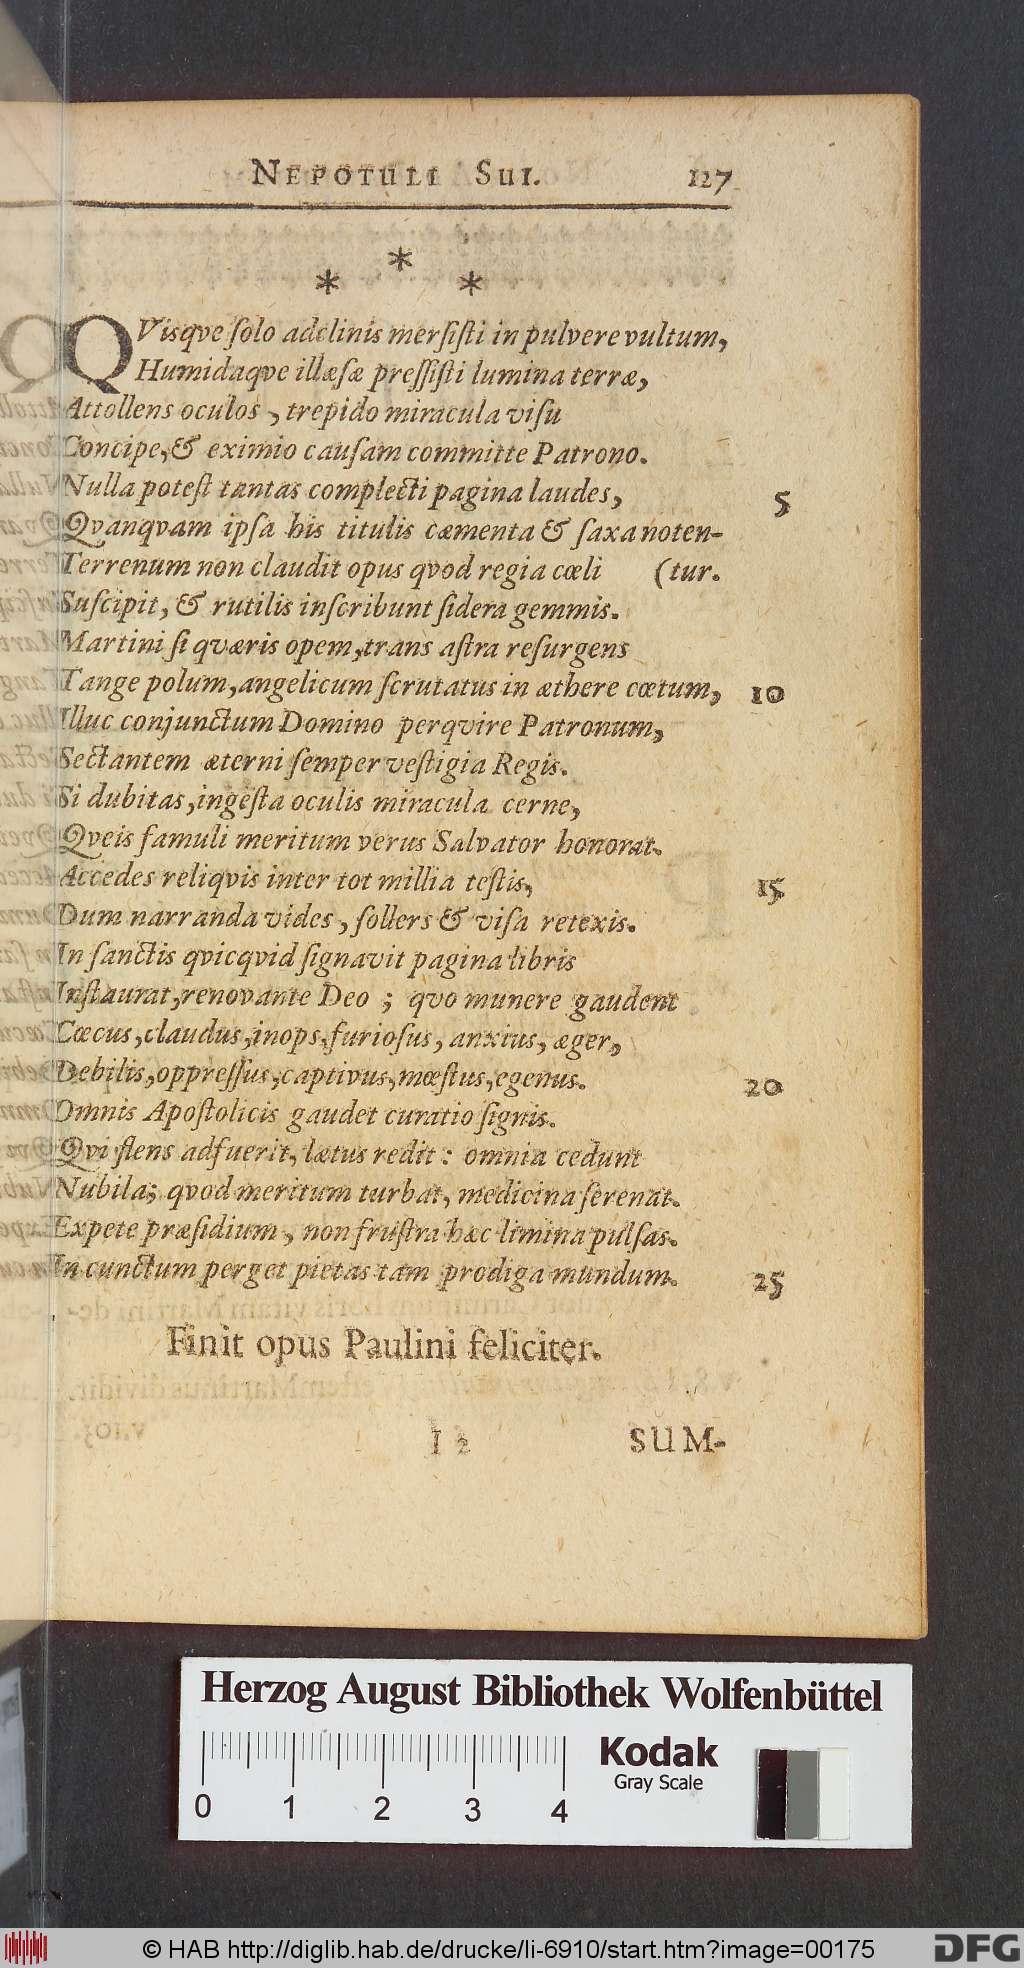 NEPOTULI SUI. 127
* * *
QVisqve ſolo adclinis merſiſti in pulvere vultum,
Humidaqve illæſæ preſſiſti lumina terræ,
Attollens oculos, trepido miracula viſu
Concipe, & eximio cauſam committe Patrono.
Nulla poteſt tantas complecti pagina laudes, 5
Qvanqvam ipſa his titulis cæmenta & ſaxa noten-
Terrenum non claudit opus qvod regia cœli (tur.
Suſcipit, & rutilis inſcribunt ſidera gemmis.
Martini ſi qværis opem, trans aſtra reſurgens
Tange polum, angelicum ſcrutatus in æthere cœtum, 10
Illuc conjunctum Domino perqvire Patronum,
Sectantem æterni ſemper veſtigia Regis.
Si dubitas, ingeſta oculis miracula cerne,
Qveis famuli meritum verus Salvator honorat.
Accedes reliqvis inter tot millia teſtis, 15
Dum narranda vides, ſollers & viſa retexis.
In ſanctis qvicqvid ſignavit pagina libris
Inſtaurat, renovante Deo ; qvo munere gaudent
Cœcus, claudus, inops, furioſus, anxius, æger,
Debilis, oppreſſus, captivus, mœſtus, egenus. 20
Omnis Apoſtolicis gaudet curatio ſignis.
Qvi flens adfuerit, lætus redit: omnia cedunt
Nubila; qvod meritum turbat, medicina ſerenat.
Expete præſidium, non fruſtra hæc limina pulſas.
In cunctum perget pietas tam prodiga mundum. 25
Finit opus Paulini feliciter.
I 2 SUM-
Herzog August Bibliothek Wolfenbüttel
Kodak
Gray Scale
0 1 2 3 4
© HAB http://diglib.hab.de/drucke/li-6910/start.htm?image=00175
DFG